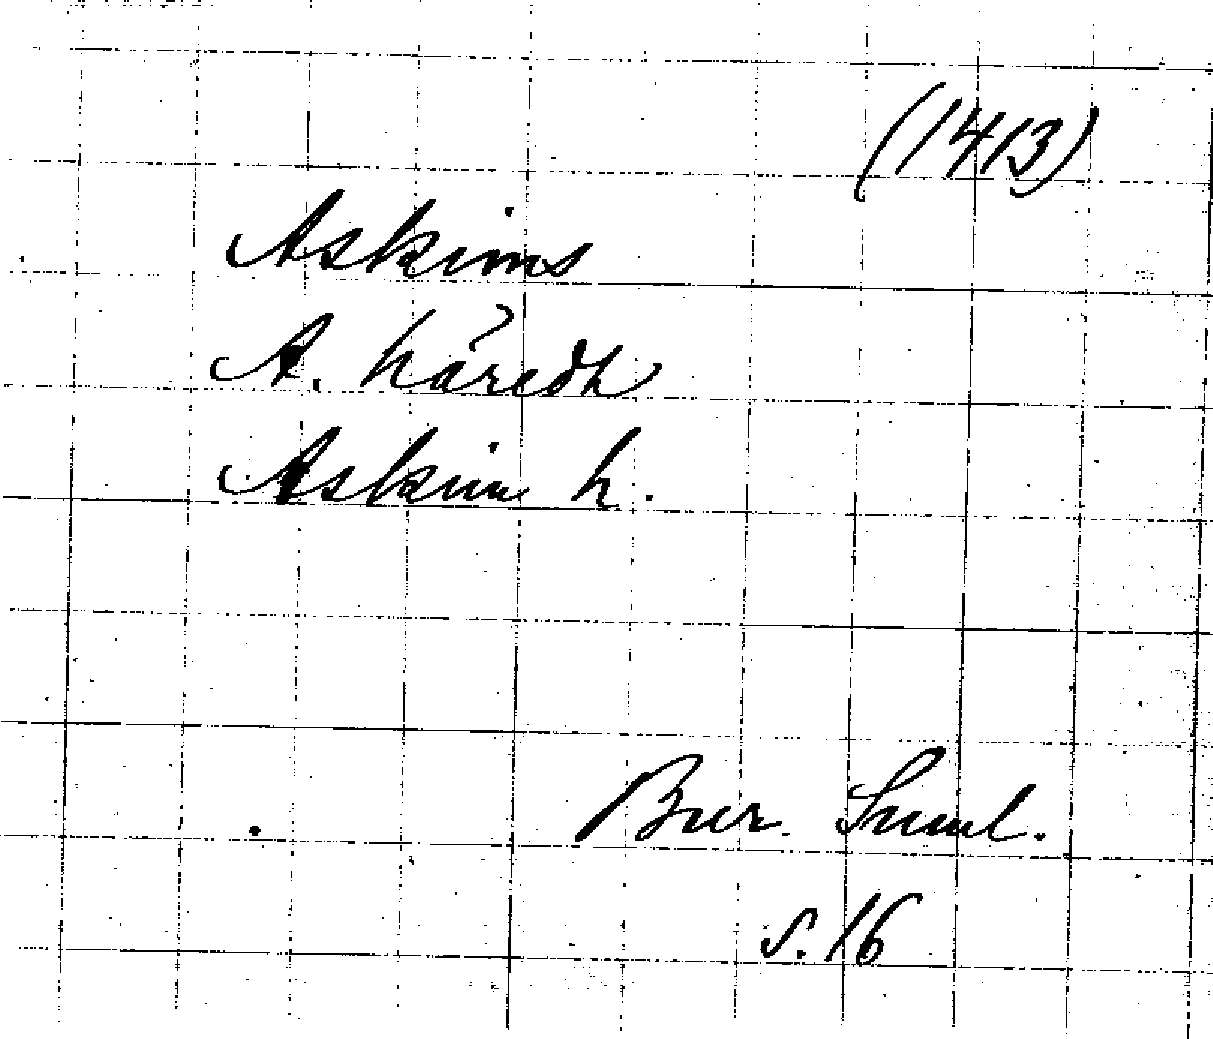 (1413)
Askims
A. häredh
Askim h.
Bur. Suml.
s. 16